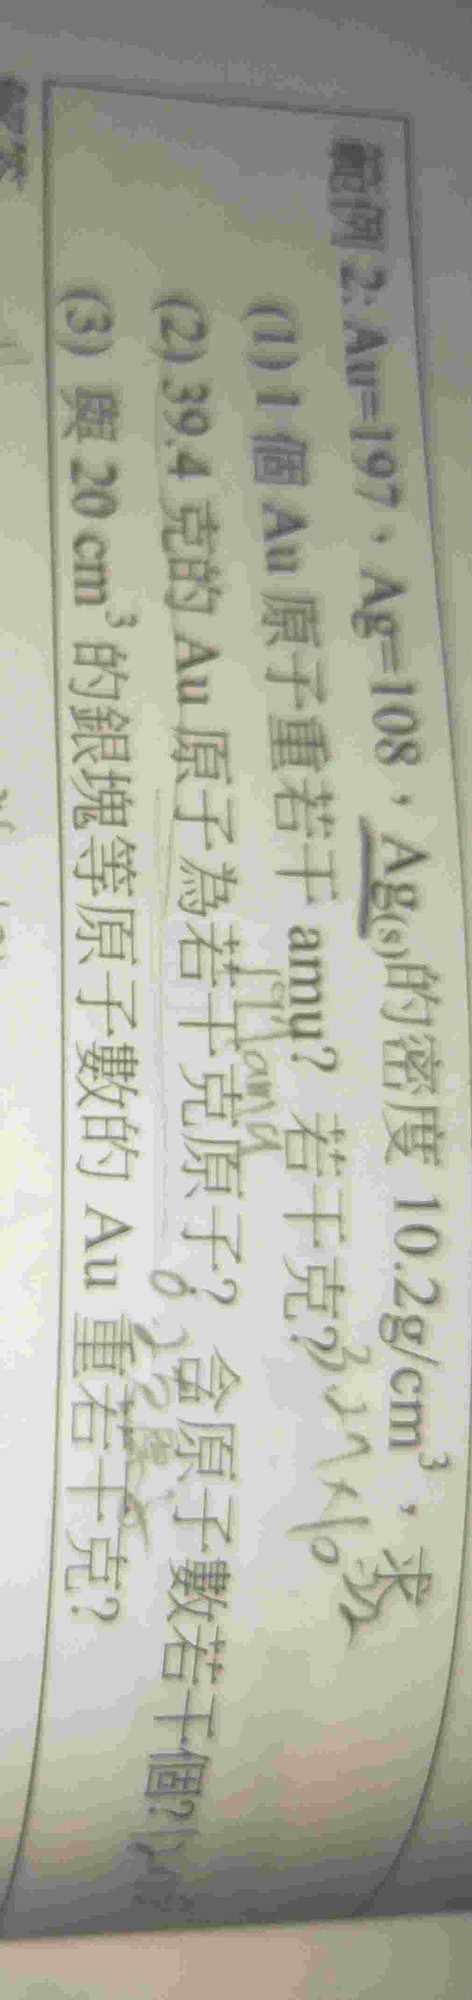 範例 2: Au=197、Ag=108，Ag(s)的密度 10.2g/cm³，求
(1) 1 個 Au 原子重若干 amu？若干克？
(2) 39.4 克的 Au 原子為若干克原子？含原子數若干個？
(3) 與 20 cm³ 的銀塊等原子數的 Au 重若干克？
amu